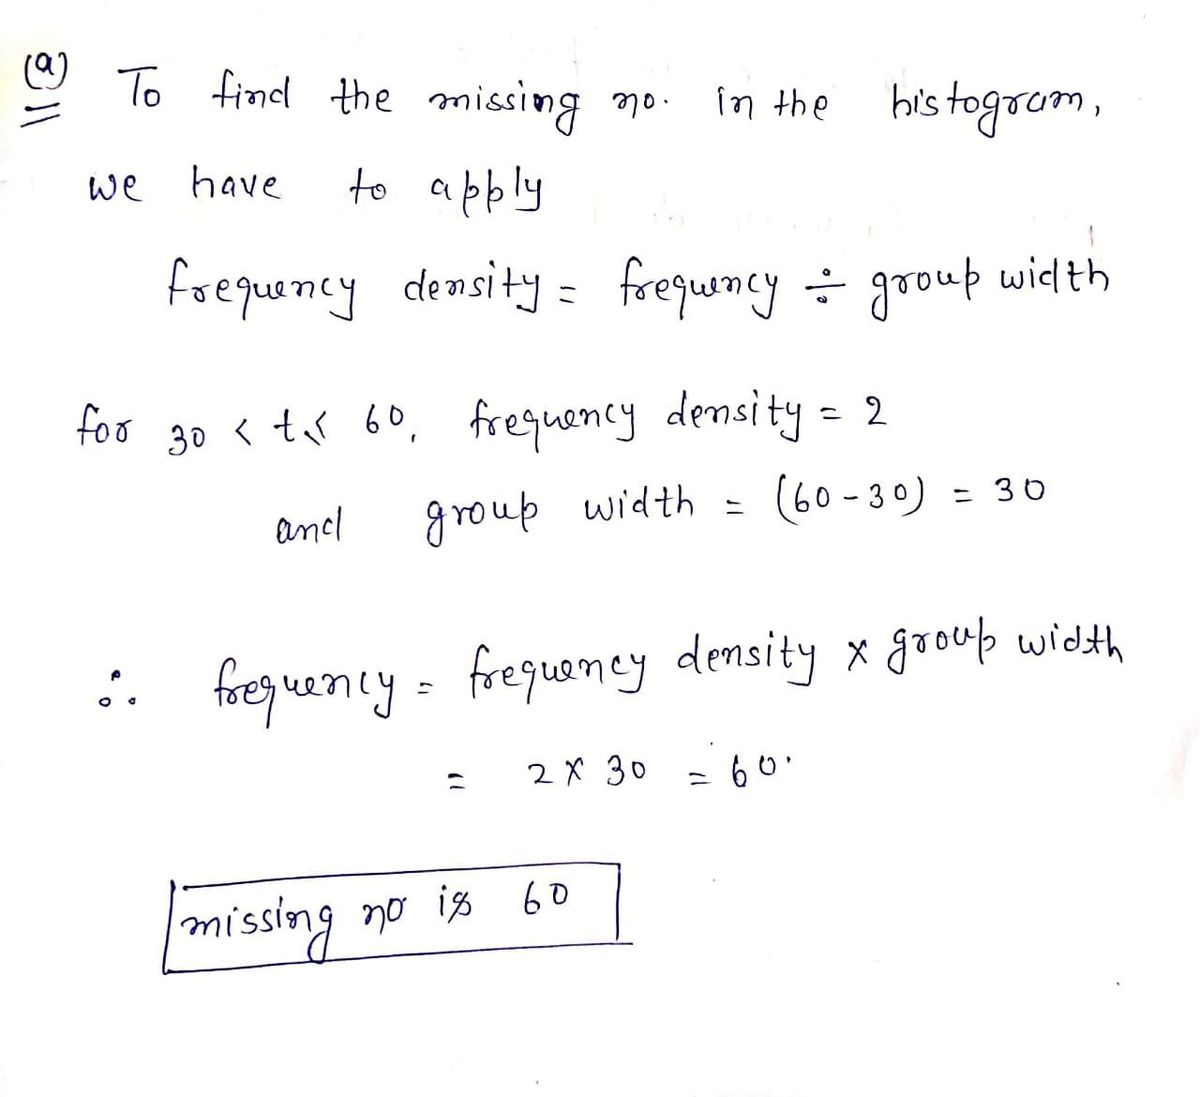 (a) To find the missing no. in the histogram,
we have to apply
frequency density = frequency ÷ group width
for 30 < t ≤ 60, frequency density = 2
and group width = (60-30) = 30
∴ frequency = frequency density x group width
= 2 x 30 = 60.
missing no is 60